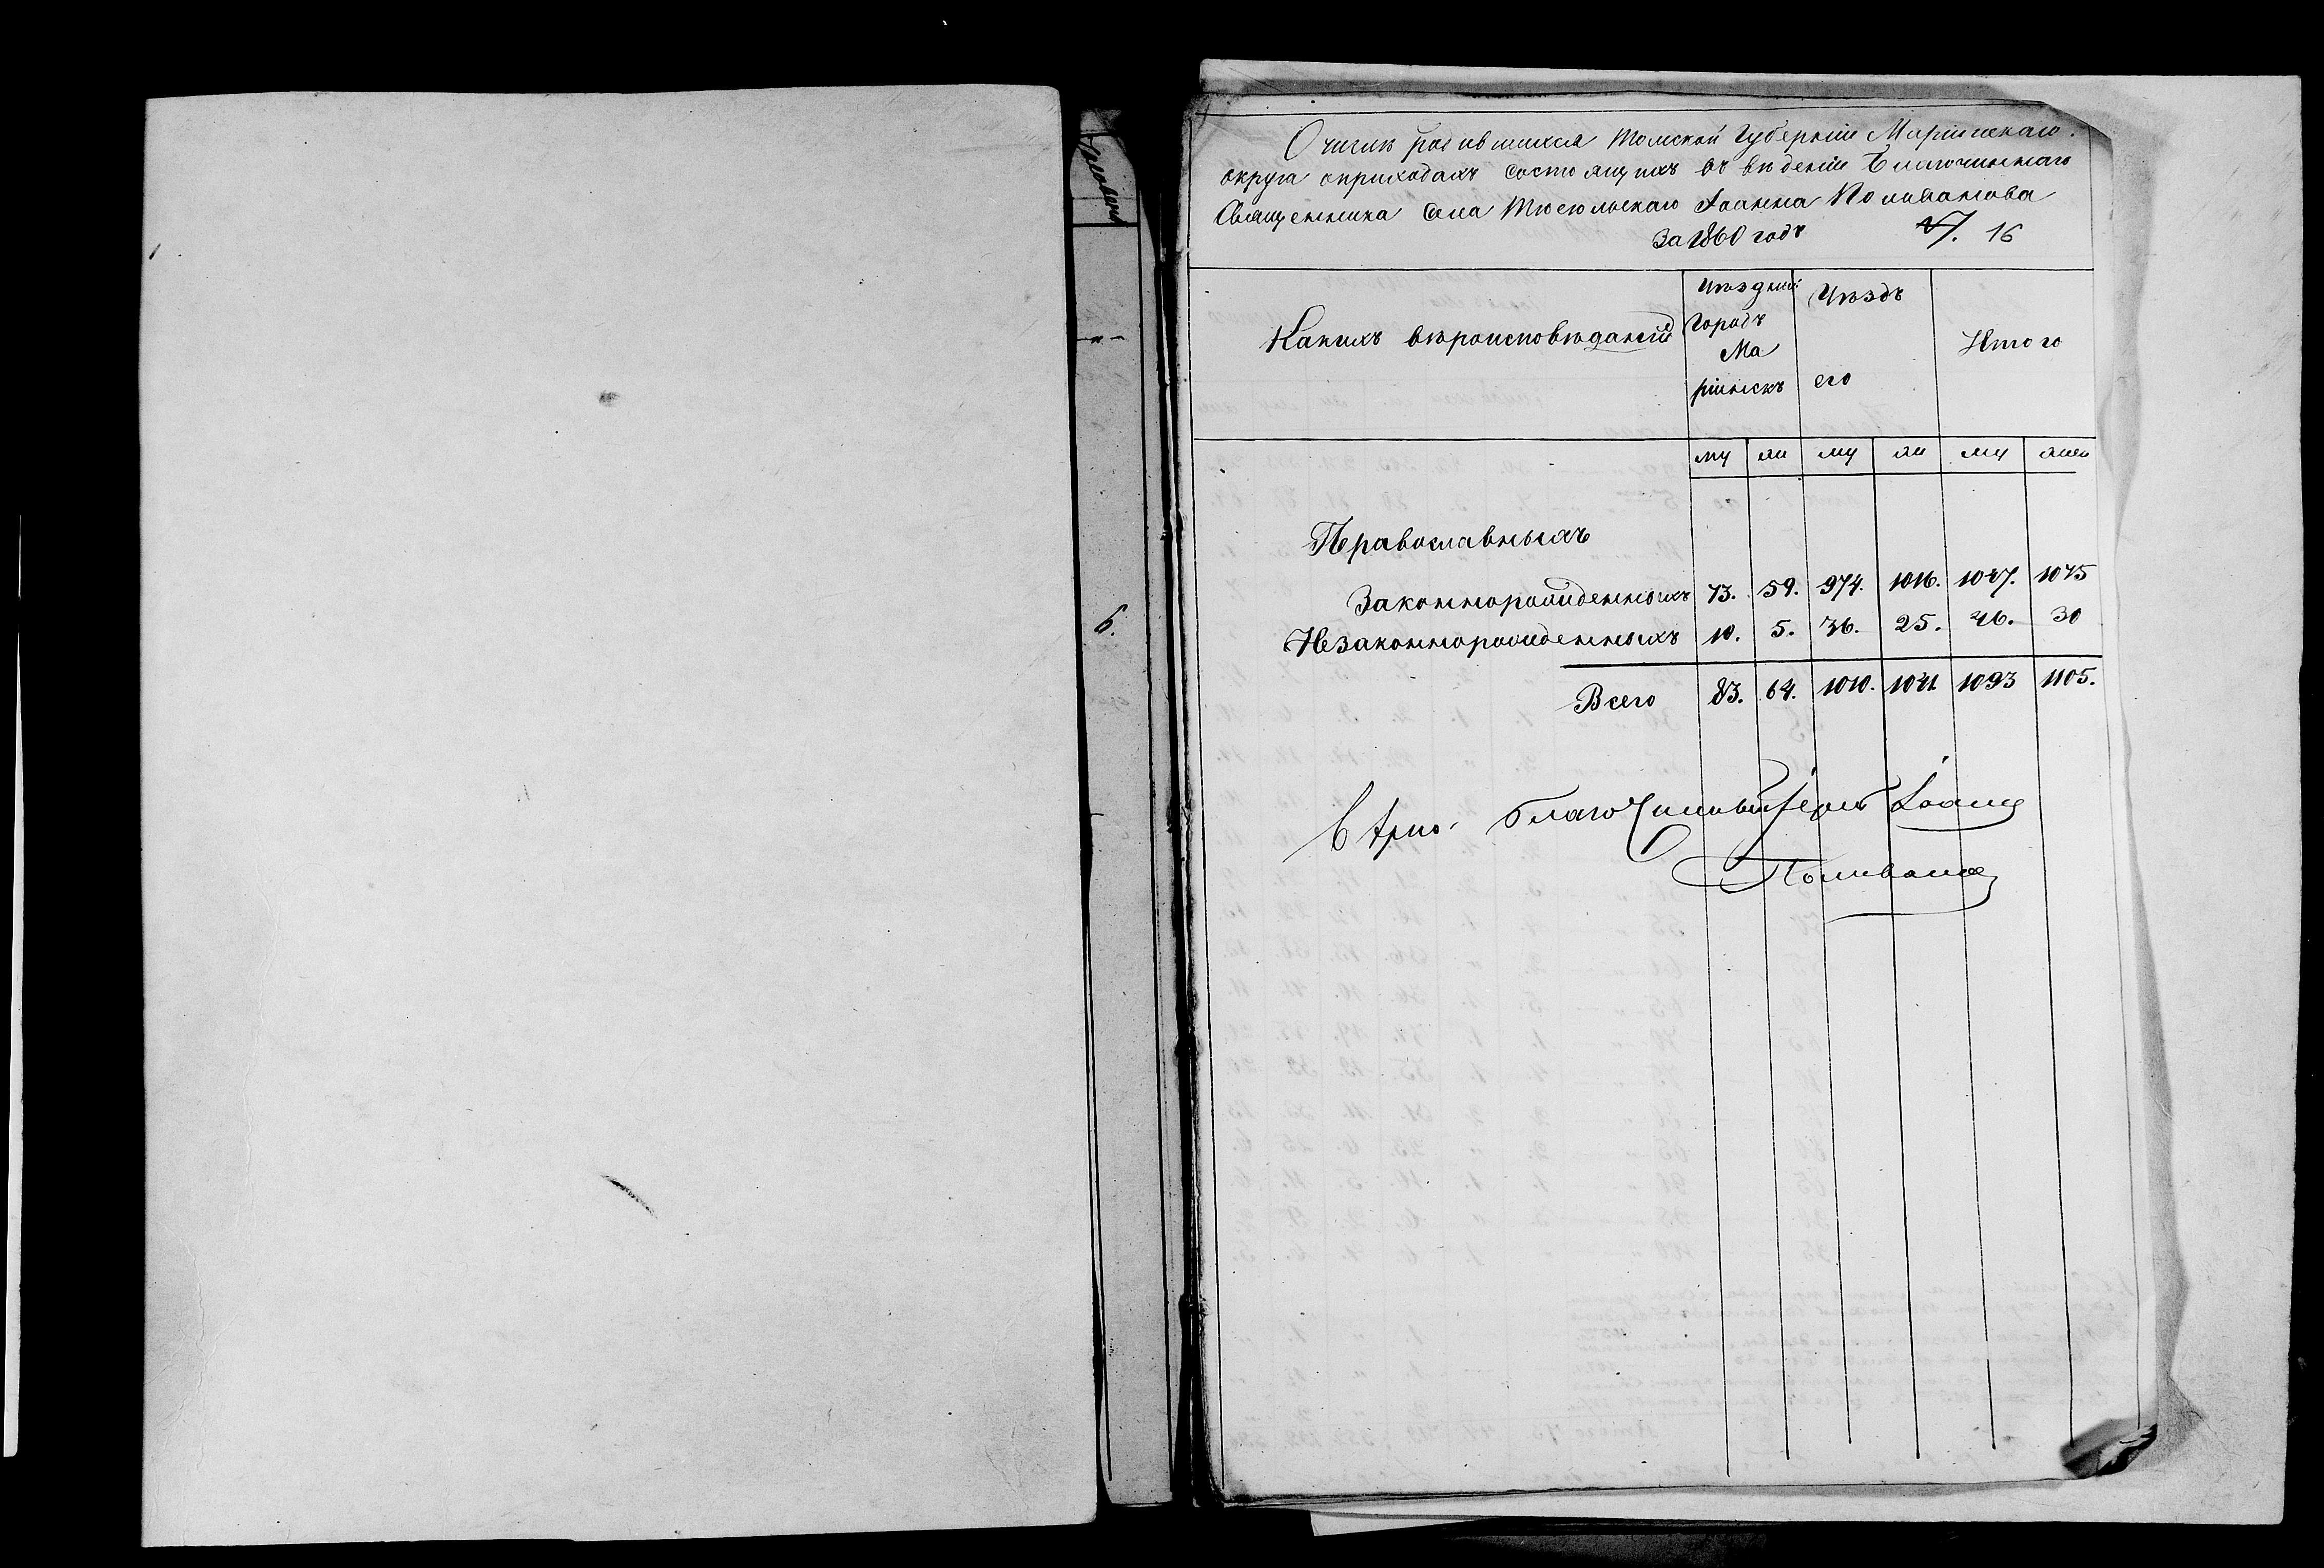 О числѣ родившихся Томской Губерніи Маріинскаго
округа вприходахъ состоящихъ въ вѣденіи Благочиннаго
Священника села Тисюльскаго Іоанна Поливанова
За 1860 годъ 16
Какихъ вѣроисповѣданій Уѣздный Городъ Ма ріинскъ Уѣздъ его Итого
му же му же му жен
Православныхъ
Законнорожденныхъ 73. 59. 974. 1016. 1047. 1075
Незаконнорожденныхъ 10. 5. 36. 25. 46. 30
Всего 83. 64. 1010. 1041 1093 1105.
Благочинный Іерей Іоаннъ
Поливановъ
6.